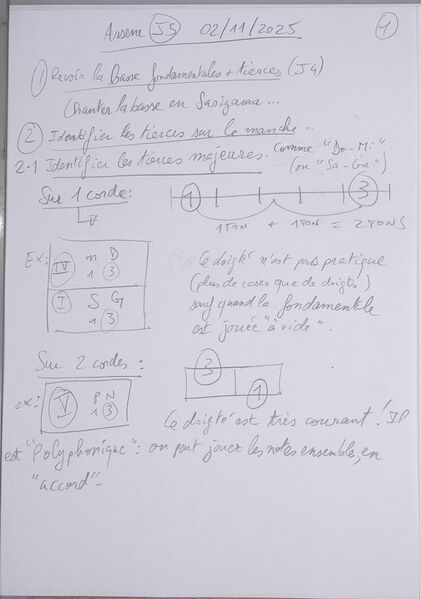 Arsene J5 02/11/2025 1
① Revoir la basse fondamentales + tierces (J4)
Chanter la basse en Sarigama...
② Identifier les tierces sur le manche..
2.1 Identifier les tierces majeures. comme "Do-Mi"
(ou "Sa-Ga")
Sur 1 corde:
1 3
1TON + 1TON = 2TONS
Ex: IV m D
1 3
I S G
1 3
Ce doigté n'est pas pratique
(plus de cases que de doigts)
sauf quand la fondamentale
est jouée "à vide".
Sur 2 cordes:
3
1
ex: V P N
1 3
Ce doigté est très courant! Il
est "Polyphonique": on peut jouer les notes ensemble, en
"accord"-